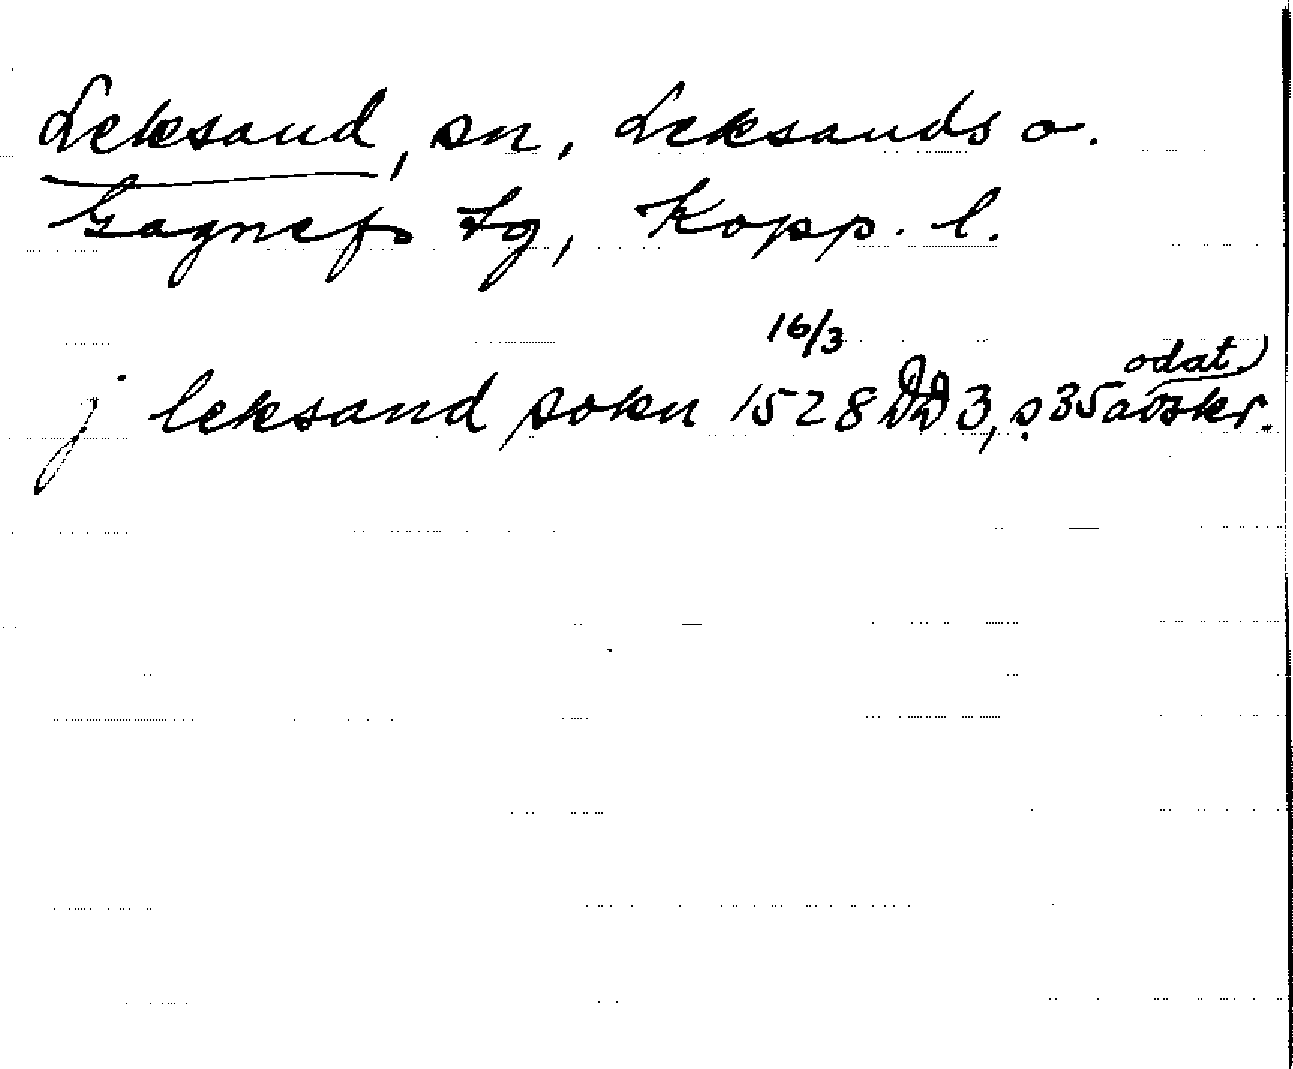 Leksand, sn, Leksands o.
Gagnefs tg, Kopp. l.
16/3
j leksand sokn 1528 DD 3, s. 35 odat. avskr.